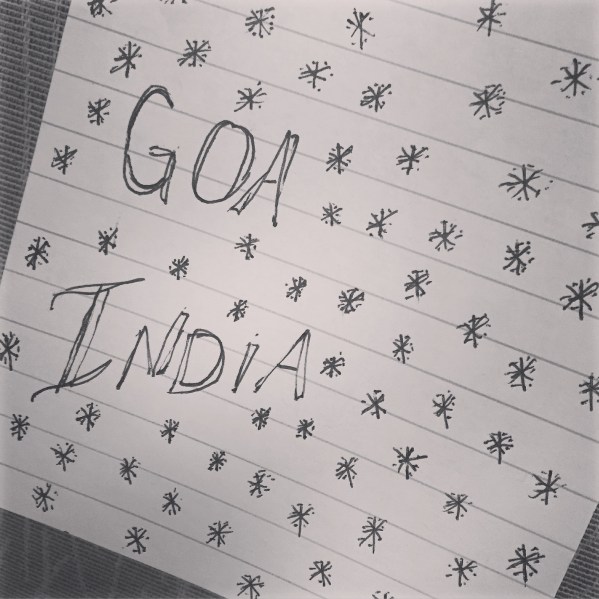 GOA
INDiA